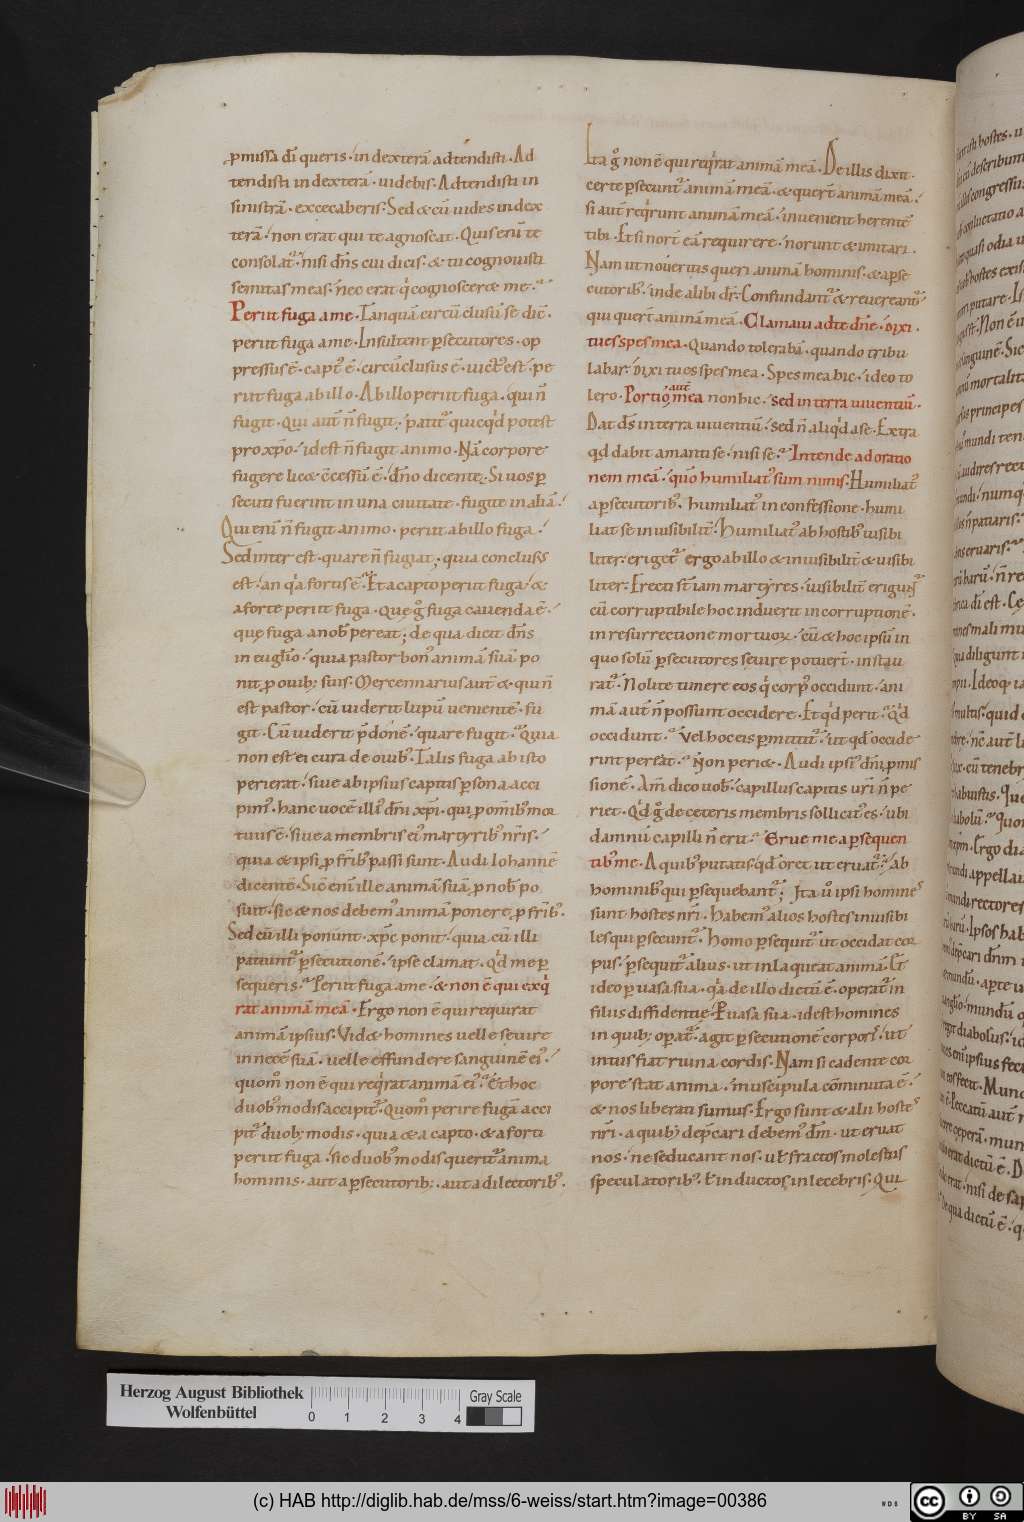 ꝓmissa dī queris· in dexterā adtendisti· Ad
tendisti in dexterā· uidebis· Adtendisti in
sinistrā· excecaberis· Sed & cū uides in dex
terā· non erat qui te agnoscat· Quis enī te
consolat᷑· nisi dn̄s cui dicis· & tu cognouisti
semitas meas· nec erat qͥ cognoscer& me·
Periit fuga a me· Tanquā circū clusū se dic̄·
periit fuga a me· Insultent ꝑsecutores· op
pressus ē· capt᷒ ē· circūclusus ē· uict᷒ est· pe
riit fuga ab illo· Ab illo periit fuga· qui n̄
fugit· Qui aut̄ n̄ fugit· patit᷑ quicqͥd potest
pro xp̄o· idest n̄ fugit animo· Nā corpore
fugere lic&· c̄cessū ē· dn̄o dicente· Si uos ꝑ
secuti fuerint in una ciuitate· fugite in aliā·
Qui enī n̄ fugit animo· periit ab illo fuga·
Sed inter est· quare n̄ fugiat· quia conclusus
est· an qͥa fortis ē· Et a capto periit fuga· &
a forte periit fuga· Quę gͦ fuga cauenda ē·
quę fuga a nob̄ pereat; de qua dicit dn̄s
in euglīo· quia pastor bon᷒ animā suā po
nit ꝓ ouib; suis· Mercennarius aut̄ & qui n̄
est pastor· cū uiderit lupū uenientē· fu
git· Cū uiderit p̄donē· quare fugit· Quia
non est ei cura de ouib᷒· Talis fuga ab isto
perierat· siue ab ipsius capitis ꝑsona acci
pim᷒· hanc uocē illi᷒ dn̄i xp̄i· qui ꝓ om̄ib᷒ mor
tuus ē· siue a membris ei᷒ martyrib᷒ nr̄is·
quia & ipsi ꝓ fr̄ib᷒ passi sunt· Audi Iohannē
dicentē· Sic̄ enī ille animā suā ꝓ nob̄ po
suit· sic & nos debem᷒ animā ponere ꝓ fr̄ib᷒·
Sed cū illi ponunt· xp̄c ponit· quia cū illi
patiunt᷑ ꝑsecutionē· ipse clamat· Qͥd me ꝑ
sequeris· Periit fuga a me· & non ē qui exqͥ
rat animā meā· Ergo non ē qui requirat
animā ipsius· Vid& homines uelle seuire
in necē suā· uelle effundere sanguinē ei᷒·
quom̊ non ē qui reqͥrat animā ei᷒· Et hoc
duob᷒ modis accipit᷑· Quom̊ perire fugā acci
pit᷑ duob; modis· quia & a capto· & a forti
periit fuga· sic duob᷒ modis querit᷑ anima
hominis· aut a ꝑsecutorib;· aut a dilectorib᷒·
Ita gͦ non ē qui reqͥrat animā meā· De illis dixit·
certe ꝑsecunt᷑ animā meā· & quer̄t animā meā·
si aut̄ reqͥrunt animā meā· inuenient herentē
tibi· Et si nor̄t eā requirere· norunt & imitari·
Nam ut noueritis queri animā hominis· & a ꝑse
cutorib᷒· inde alibi dr̄· Confundant᷑ & reuereant᷑·
qui quer̄t animā meā· Clamaui ad te dn̄e· dixi·
tu es spes mea· Quando tolerabā· quando tribu
labar· dixi tu es spes mea· Spes mea hic· ideo to
lero· Portio aut̄ mea non hic· sed in terra uiuentiū·
Dat ds̄ in terra uiuentiū· sed n̄ aliqͥd a se· Extra
qͥd dabit amanti se· nisi se· Intende ad oratio
nem meā· quō humiliat᷒ sum nimis· Humiliat᷒
a ꝑsecutorib᷒· humiliat᷒ in confessione· humi
liat se inuisibilit̄· Humiliat᷒ ab hostib᷒ uisibi
liter· eriget᷑ ergo ab illo & inuisibilit̄ & uisibi
liter· Erecti st̄ iam martyres· uisibilit̄ erigunt᷑
cū corruptibile hoc induerit incorruptionē·
in resurrectione mortuoꝝ· cū & hoc ipsū in
quo solū ꝑsecutores seuire potuer̄t· instau
rat᷑· Nolite timere eos qͥ corp᷒ occidunt· ani
mā aut̄ n̄ possunt occidere· Et qͥd perit· Qͥd
occidunt· Vel hoc eis ꝑmittit᷑· ut qd̄ occide
runt pereat· Non peri&· Audi ipsi᷒ dn̄i ꝓmis
sionē· Am̄ dico uob̄· capillus capitis ur̄i n̄ pe
riet· Qͥd gͦ de ceteris membris sollicit᷒ es· ubi
damnū capilli n̄ erit· Erue me a ꝑsequen
tib᷒ me· A quib᷒ putatis· qd̄ oret ut eruat᷑· Ab
hominib᷒ qui ꝑsequebant᷑; Ita uͦ ipsi homines
sunt hostes nr̄i· Habem᷒ alios hostes inuisibi
les qui ꝑsecunt᷑· Homo ꝑsequit᷑ ut occidat cor
pus· ꝑsequit᷑ alius· ut inlaqueat animā· Et
ideo ꝑ uasa sua· qͥa de illo dictū ē· operat᷑ in
filiis diffidentie· Ꝑ uasa sua· idest homines
in quib; oꝑat᷑· agit ꝑsecutionē corpori· ut
intus fiat ruina cordis· Nam si cadente cor
pore stat anima· muscipula cōminuta ē·
& nos liberati sumus· Ergo sunt & alii hostes
nr̄i· a quib; dep̄cari debem᷒ dm̄· ut eruat
nos· ne seducant nos· ul̄ fractos molestiis
speculatorib᷒· ł inductos inlecebris· Qui
Herzog August Bibliothek
Wolfenbüttel
0 1 2 3 4
Gray Scale
(c) HAB http://diglib.hab.de/mss/6-weiss/start.htm?image=00386
WDB
cc
BY SA